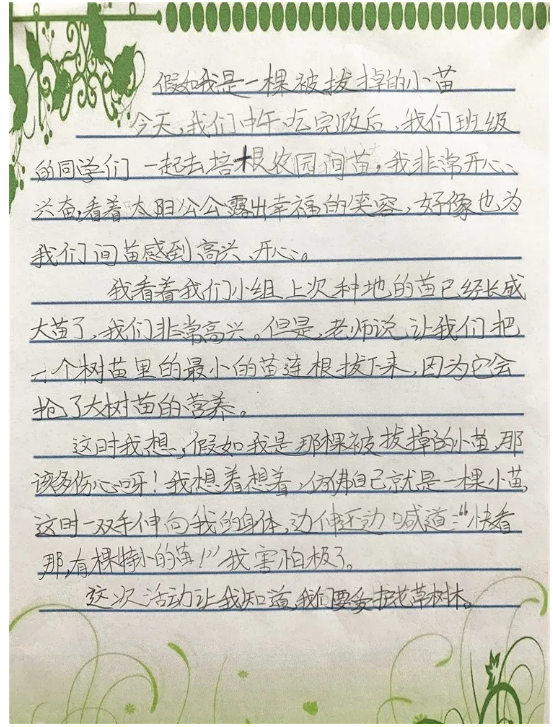 假如我是一棵被拔掉的小苗
今天,我们中午吃完饭后、我们班级
的同学们一起去培根农园间苗,我非常开心、
兴奋,看着太阳公公露出幸福的笑容,好像也为
我们间苗感到高兴、开心。
我看着我们小组上次种地的苗已经长成
大苗了,我们非常高兴。但是,老师说让我们把
一个树苗里的最小的苗连根拔下来,因为它会
抢了大树苗的营养。
这时我想,假如我是那棵被拔掉的小苗,那
该多伤心呀!我想着想着,仿佛自己就是一棵小苗,
这时一双手伸向我的身体,边伸还边喊道:“快看
那,有棵特小的苗!”我害怕极了。
这次活动让我知道,我们要爱护花草树木。